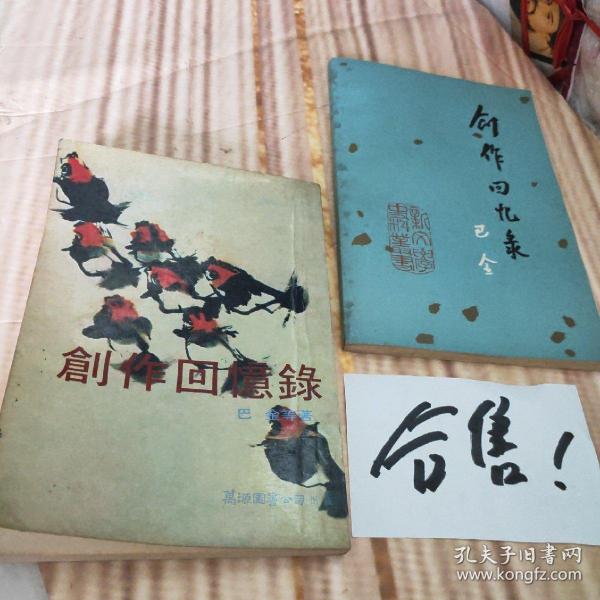 創作回憶錄
巴 金等著
萬源圖書公司
创作回忆录
巴金
新文學
史料叢書
合售!
孔夫子旧书网
www.kongfz.com